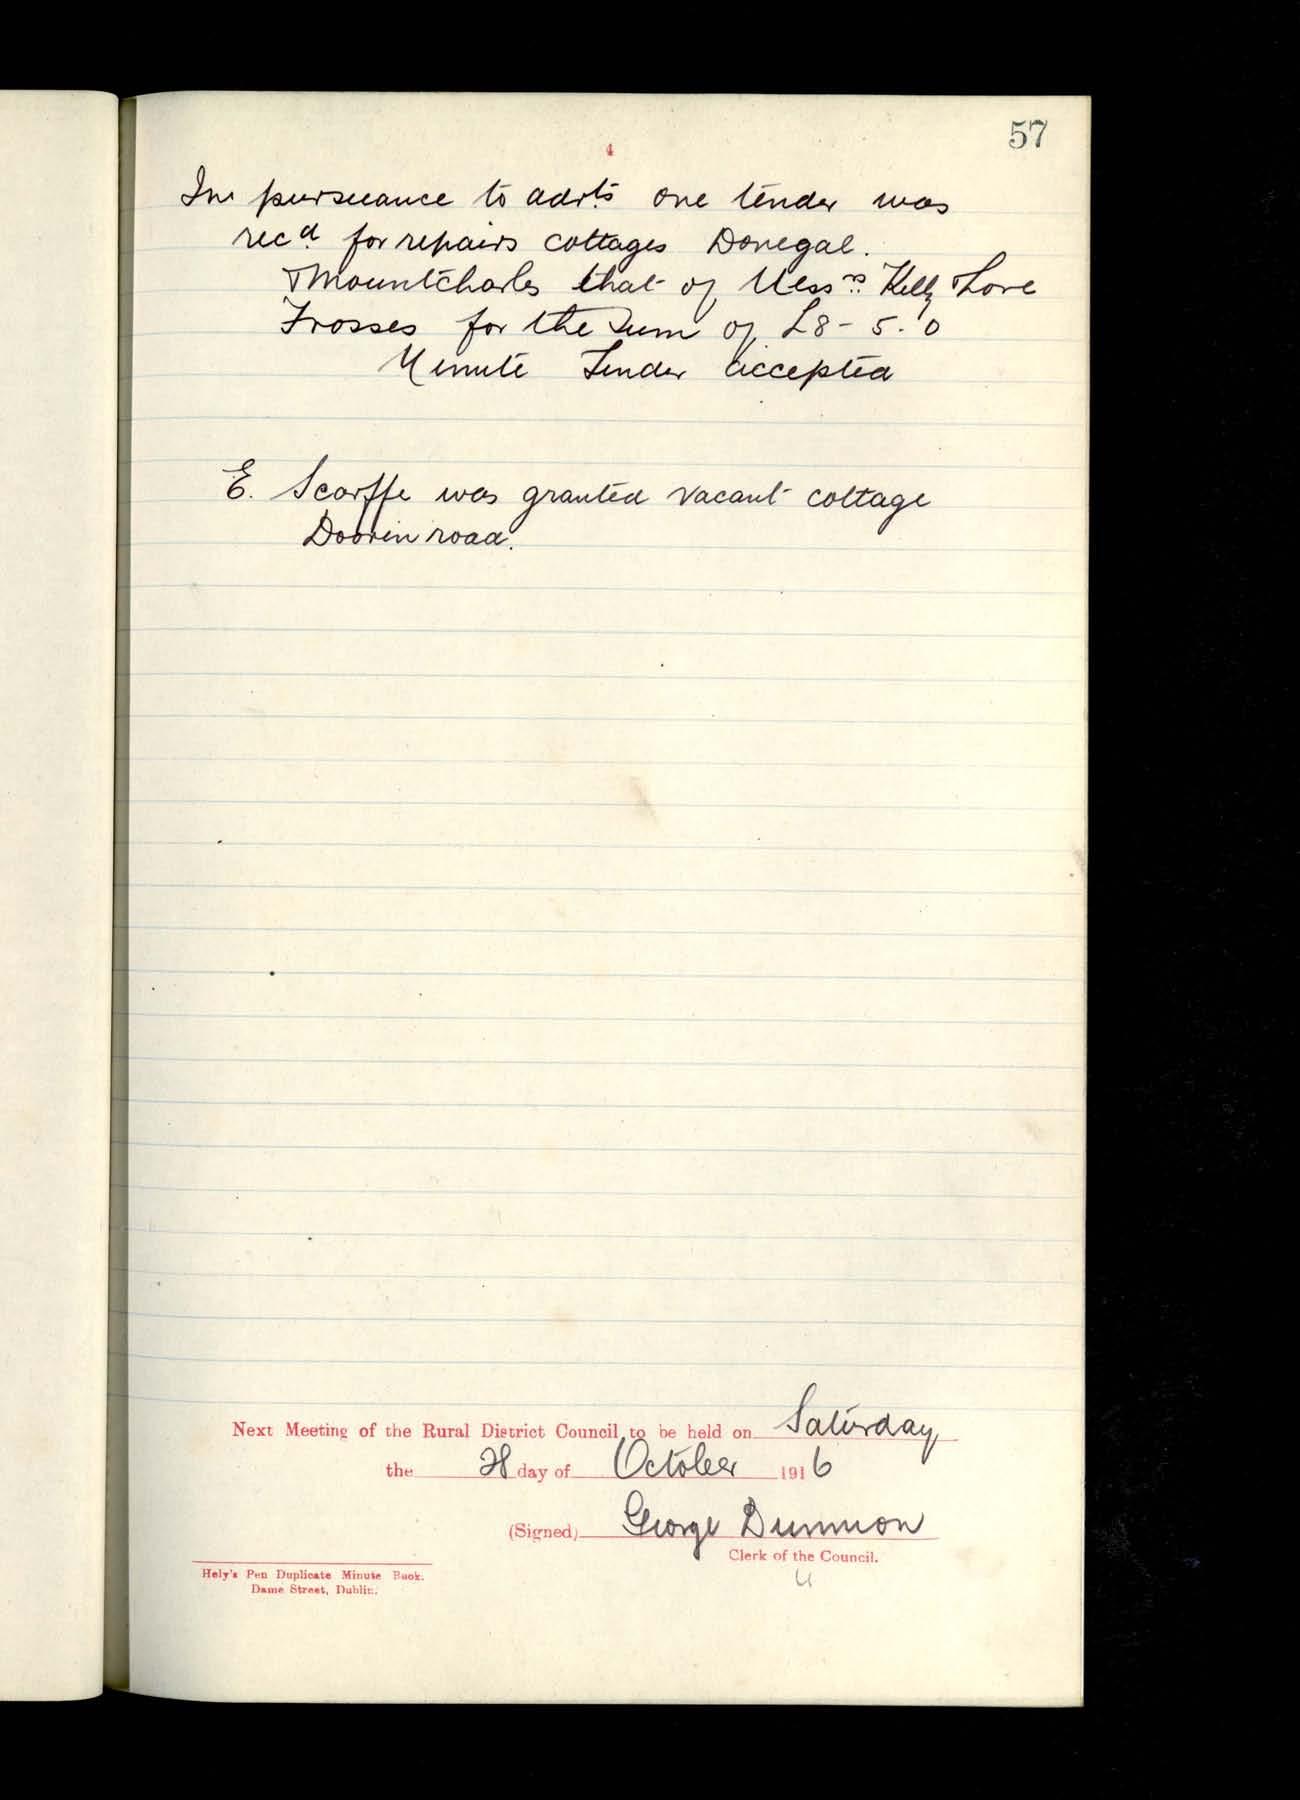 57
4
In pursuance to advts one tender was
recd for repairs cottages Donegal.
& Mountcharles that of Messrs Kelly & Love
Frosses for the sum of £8-5.0
Minute Tender accepted
E. Scarffe was granted vacant cottage
Doorin road.
Next Meeting of the Rural District Council to be held on Saturday
the 28 day of October 1916
(Signed) George Dunnion
Clerk of the Council.
Hely's Pen Duplicate Minute Book.
Dame Street, Dublin.